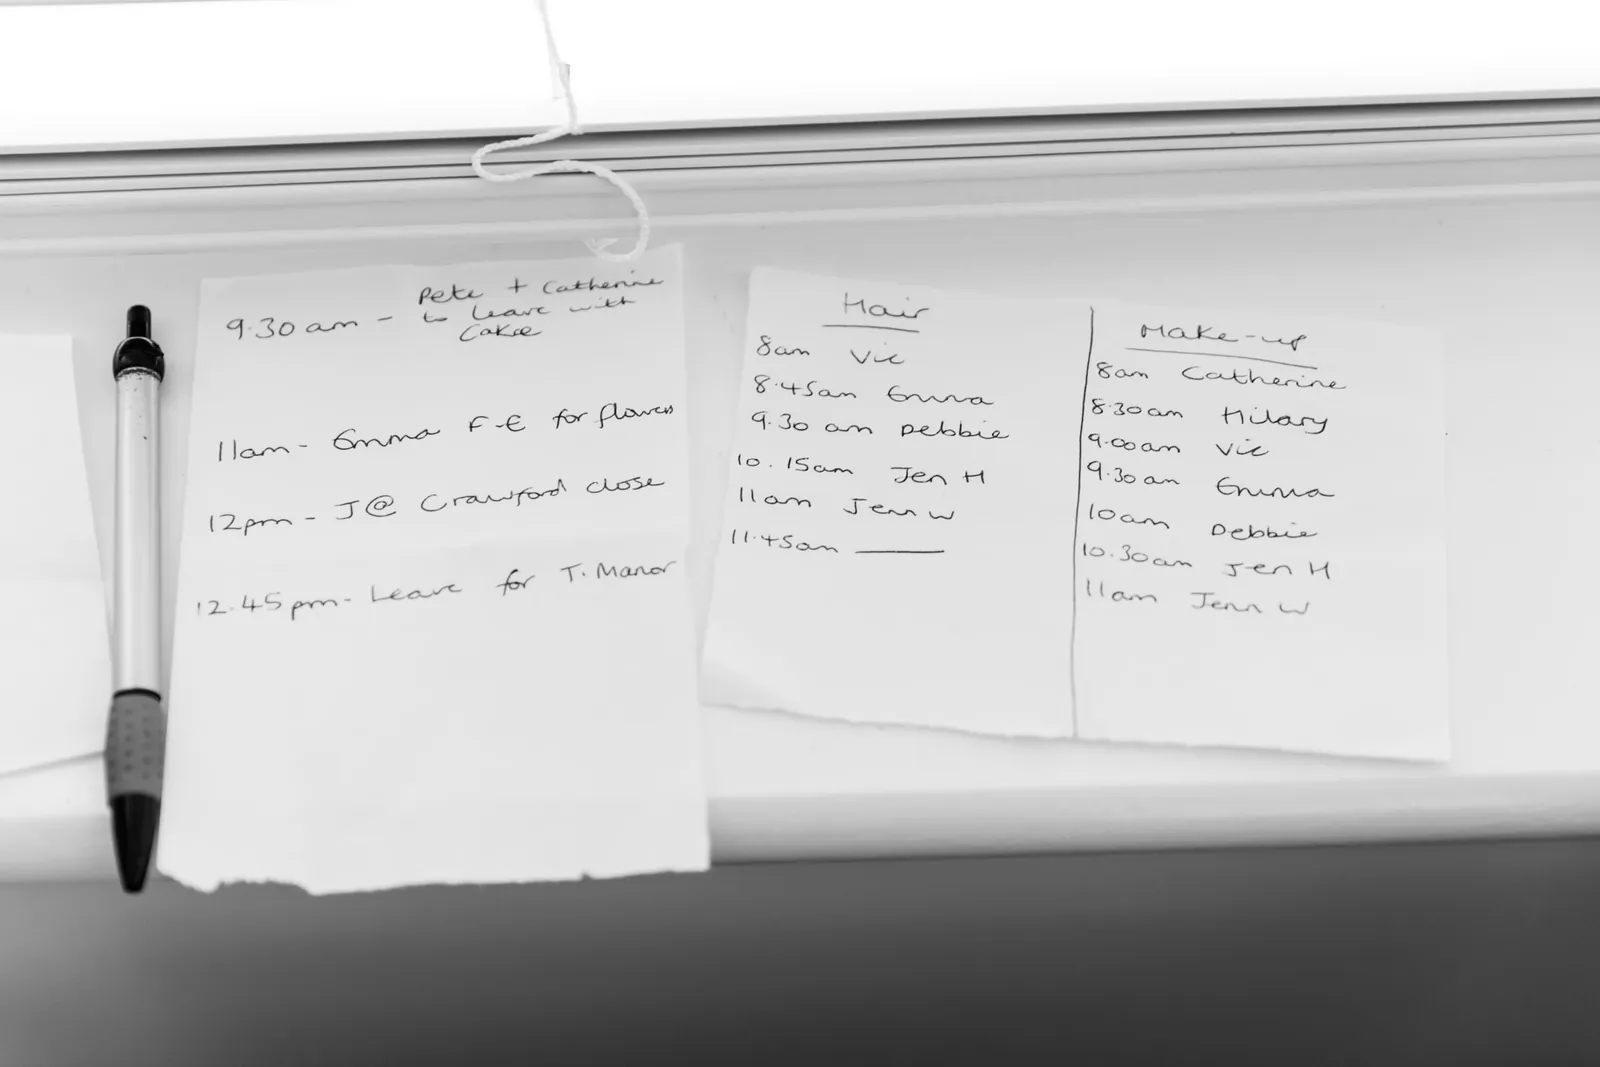 Pete + Catherine
9.30am - to leave with
Cake
11am - Emma F-E for flowers
12pm - J@ Crawford close
12.45pm - Leave for T. Manor
Hair
8am Vic
8.45am Emma
9.30 am Debbie
10.15am Jen H
11am Jenn W
11.45am ———
Make-up
8am Catherine
8.30am Hilary
9.00am Vic
9.30am Emma
10am Debbie
10.30am Jen H
11am Jenn W